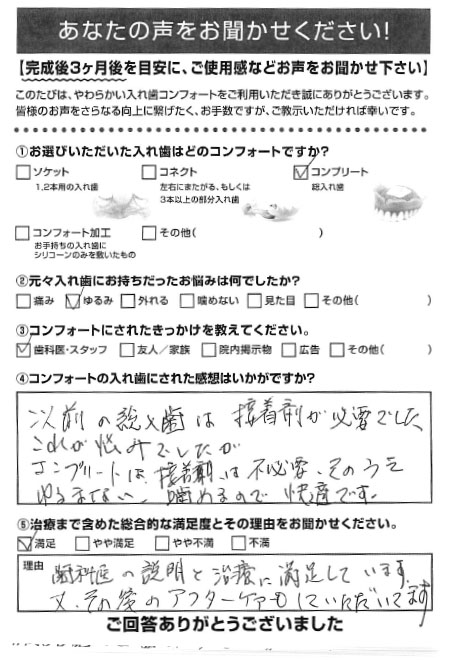 あなたの声をお聞かせください!
【完成後3ヶ月後を目安に、ご使用感などお声をお聞かせ下さい】
このたびは、やわらかい入れ歯コンフォートをご利用いただき誠にありがとうございます。
皆様のお声をさらなる向上に繋げたく、お手数ですが、ご教示いただければ幸いです。
①お選びいただいた入れ歯はどのコンフォートですか?
ソケット コネクト コンプリート
1,2本用の入れ歯 左右にまたがる、もしくは 総入れ歯
3本以上の部分入れ歯
コンフォート加工 その他( )
お手持ちの入れ歯に
シリコーンのみを敷いたもの
②元々入れ歯にお持ちだったお悩みは何でしたか?
痛み ゆるみ 外れる 噛めない 見た目 その他( )
③コンフォートにされたきっかけを教えてください。
歯科医・スタッフ 友人/家族 院内掲示物 広告 その他( )
④コンフォートの入れ歯にされた感想はいかがですか?
以前の総入歯は接着剤が必要でした
これが悩みでしたが
コンプリートは、接着剤は不必要、そのうえ
ゆるまない、噛めるので快適です。
⑤治療まで含めた総合的な満足度とその理由をお聞かせください。
満足 やや満足 やや不満 不満
理由 歯科医の説明と治療に満足しています。
又、その後のアフターケアーもしていただいてます
ご回答ありがとうございました